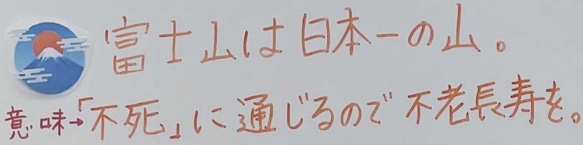 富士山は日本一の山。
意味→「不死」に通じるので不老長寿を。